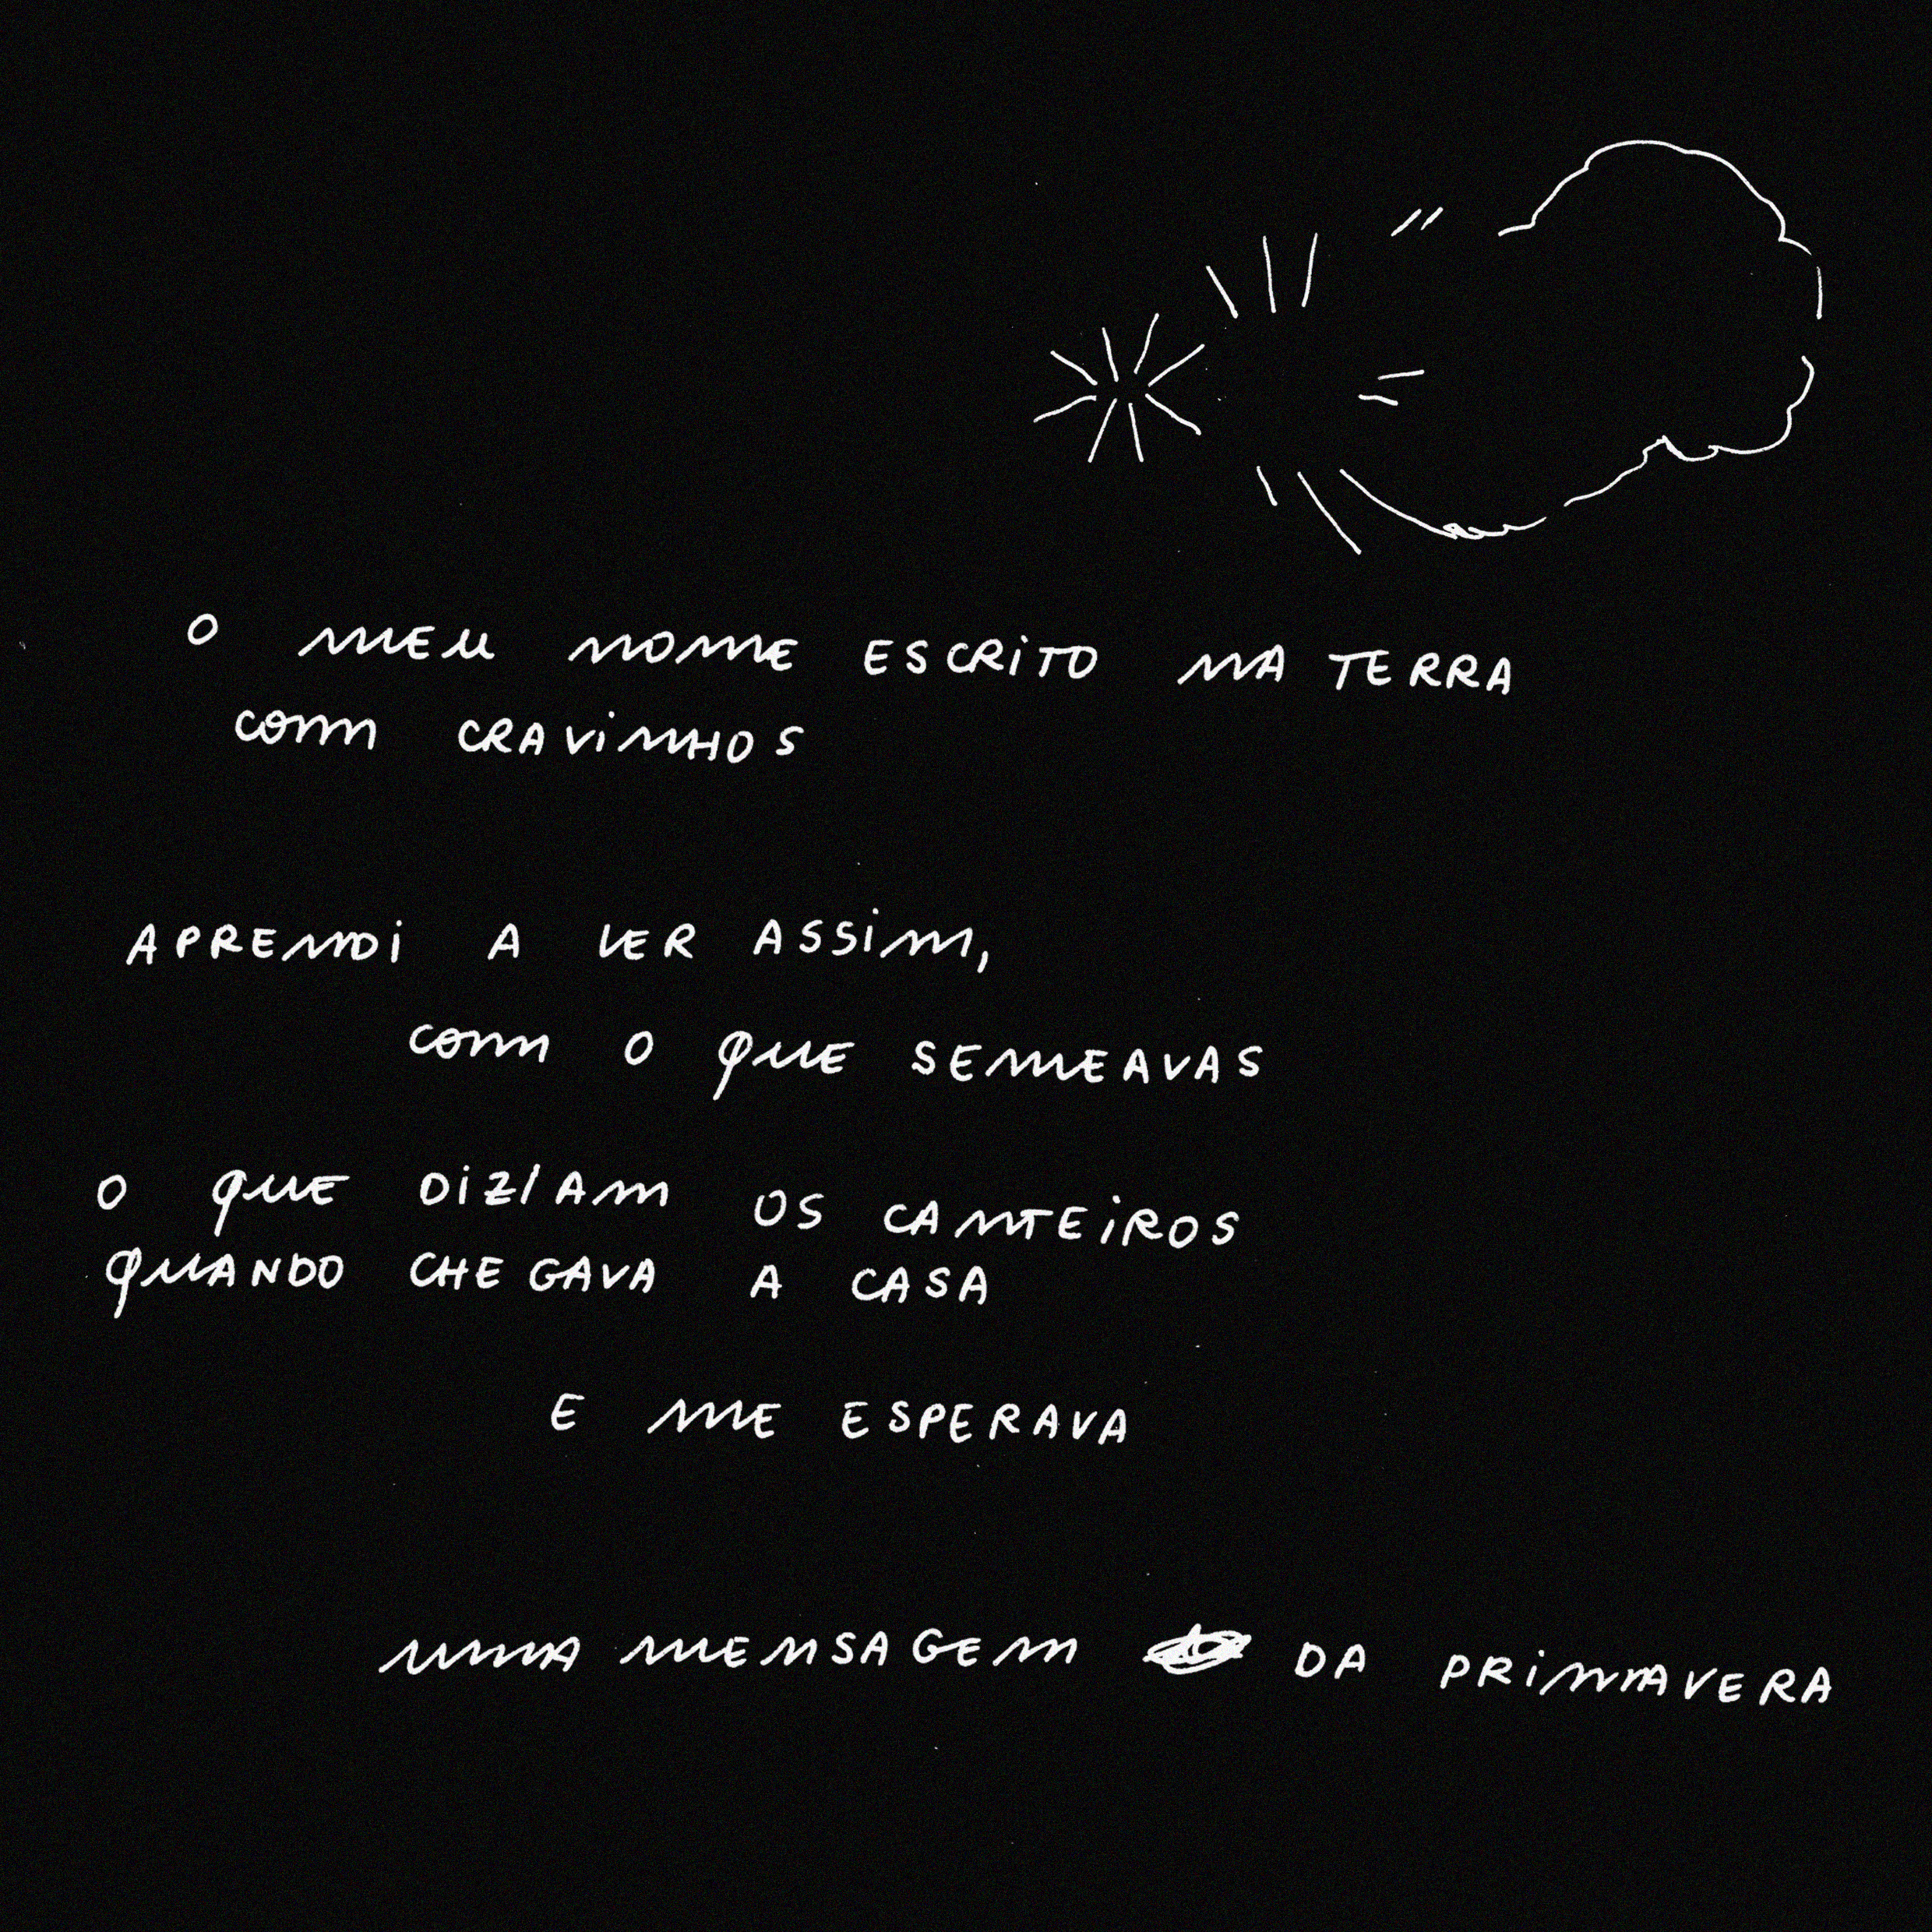 O MEU NOME ESCRITO NA TERRA
COM CRAVINHOS
APRENDI A LER ASSIM,
COM O QUE SEMEAVAS
O QUE DIZIAM OS CANTEIROS
QUANDO CHEGAVA A CASA
E ME ESPERAVA
UMA MENSAGEM DA PRIMAVERA